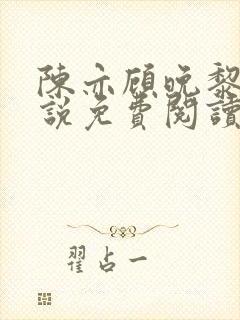 陳亦顧晚黎
說免費閱讀
翟占一